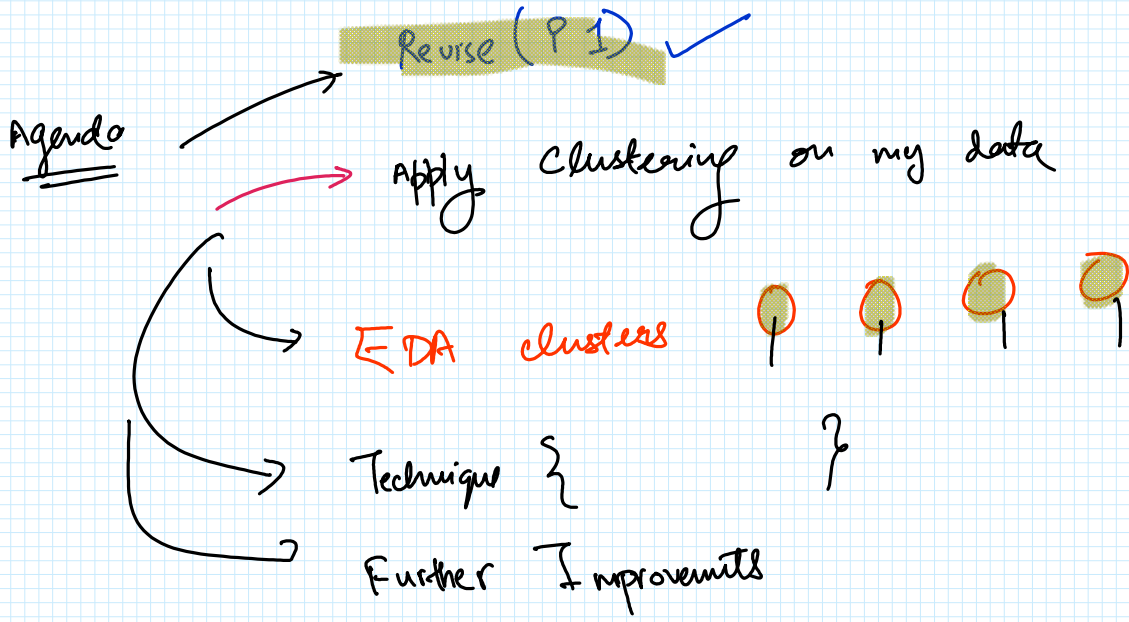 Revise (P 1)
Agenda
Apply Clustering on my data
EDA clusters
Technique { }
Further Improvements